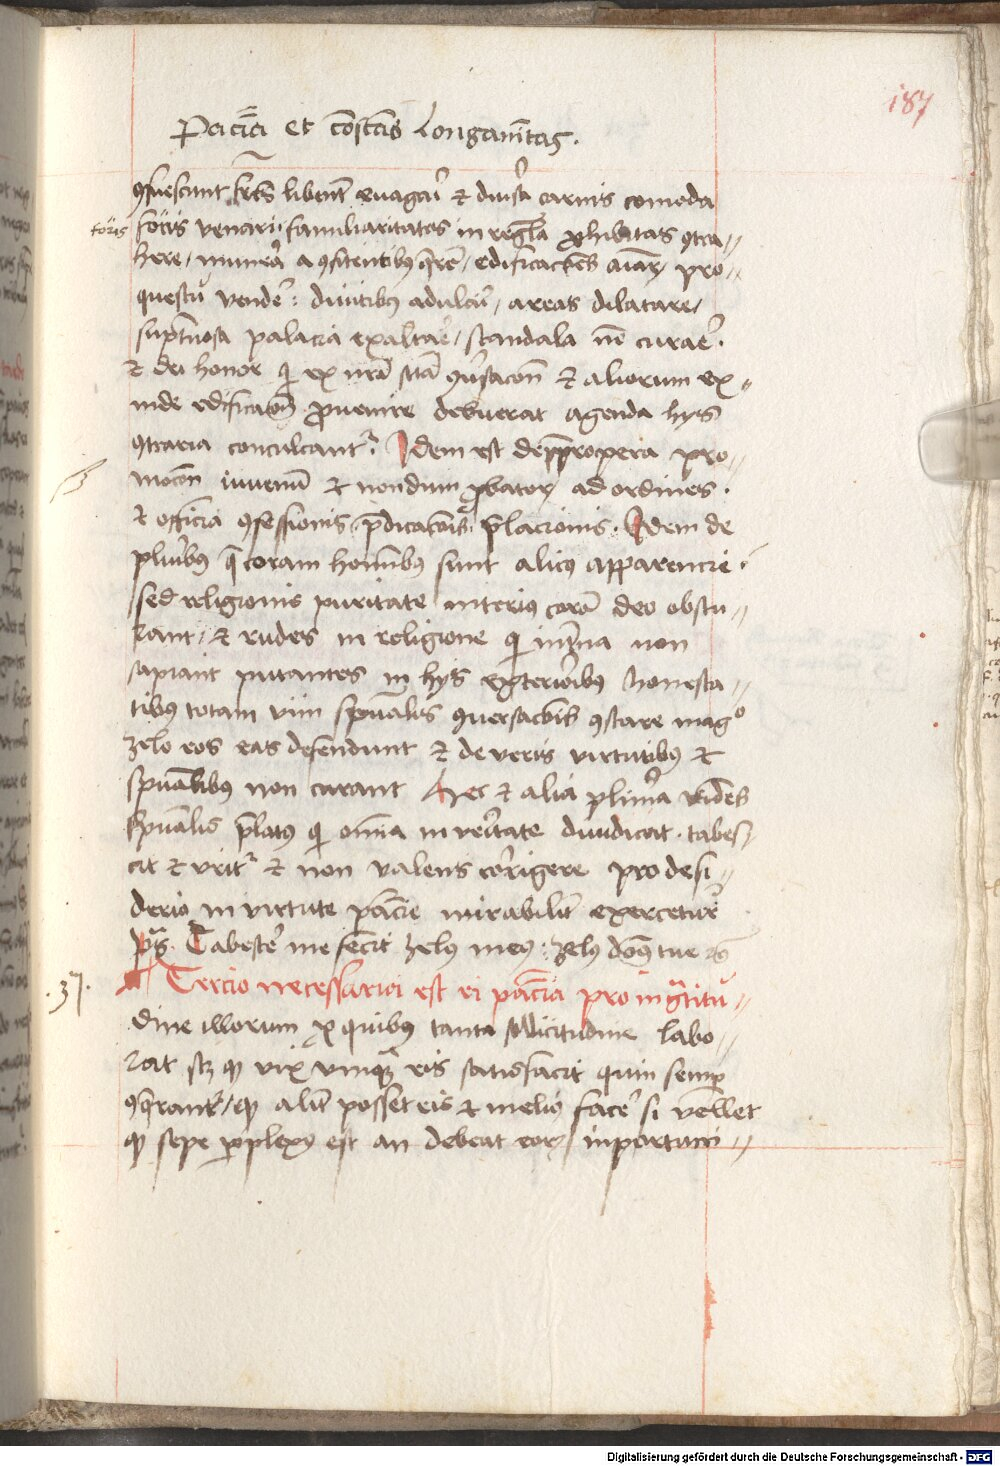 187
Pacicia et constans Longanimitas.
consuescunt fratres libenter euagari et diuersa carnis comoda
foris
foris venari. familiaritates in regula prohibitas contra
here / munera a confitentibus querere / edificationes animarum pro
questu vendere: diuitibus adulari / areas dilatare /
sumptuosa palacia exaltare / scandala non curare.
et dei honor qui ex nostra sancta conuersacione et aliorum ex
inde edificatione prouenire debuerat agenda hys
contraria conculcantur. Idem est de prepropera pro
mocione iuuenum et nondum probatorum ad ordines.
et officia confessionis predicationis prelacionis. Idem de
pluribus que coram hominibus sunt alicuius apparencie.
sed religionis puritate interius coram deo obscu
rant / et rudes in religione qui interna non
sapiunt putantes in hys exterioribus honesta
tibus totam vim spiritualis conuersationis constare magno
zelo eos eas defendunt et de veris virtutibus et
spiritualibus non curant Hec et alia plurima videns
spiritualis prelatus qui omnia in veritate diiudicat. tabes
cit et vritur et non valens corrigere pro desi
derio in virtute paciencie mirabiliter exercetur
ps. Tabescere me fecit zelus meus: zelus domus tue etc
.37. Tercio necessaria est ei paciencia pro ingratitu
dine illorum pro quibus tanta sollicitudine labo
rat scilicet quod vix vnquam eis satisfacit quin semper
conquerantur / quod aliter posset eis et melius facere si vellet
quod sepe perplexus est an debeat eorum importuni
Digitalisierung gefördert durch die Deutsche Forschungsgemeinschaft - DFG